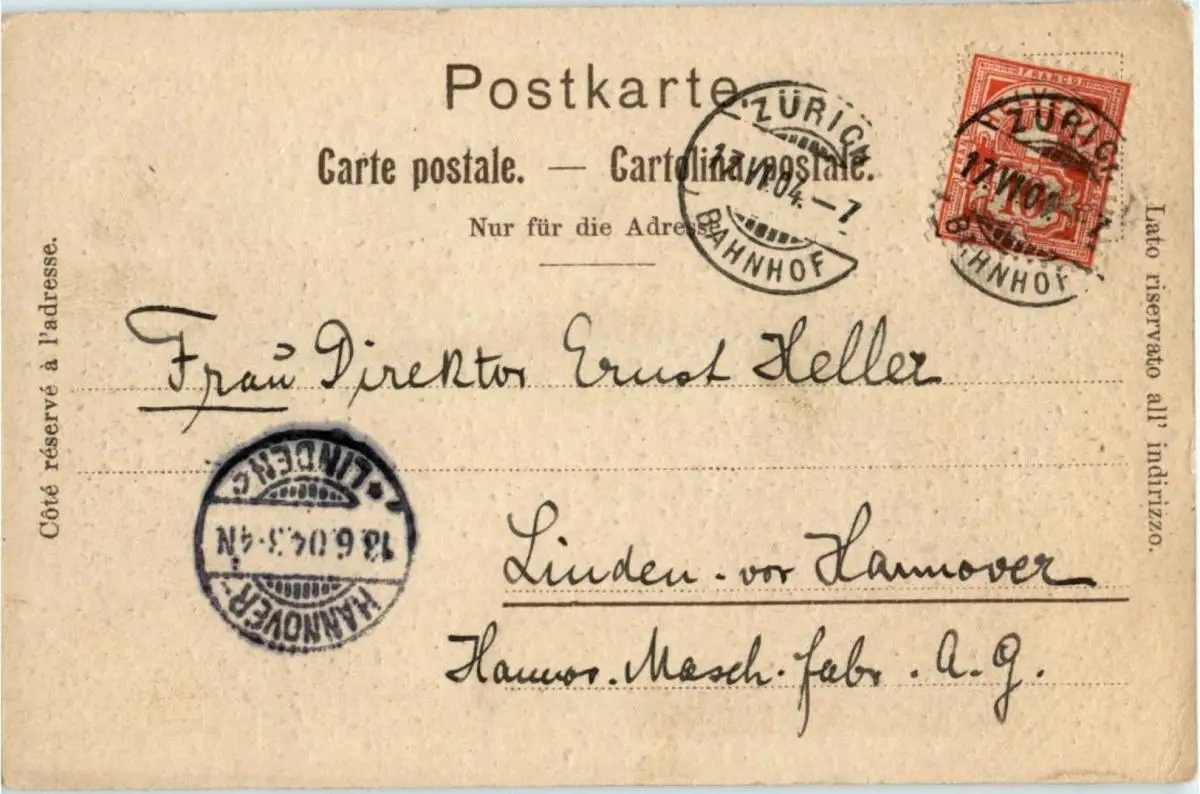 Postkarte.
Carte postale. — Cartolina postale.
Nur für die Adresse
ZÜRICH
17.VI.04.–7
BAHNHOF
FRANCO
ZÜRICH
17.VI.04.
10
BAHNHOF
Côté réservé à l'adresse.
Lato riservato all' indirizzo.
Frau Direktor Ernst Heller
HANNOVER-
18.6.04.3-4N
*LINDEN c
Linden - vor Hannover
Hannov. Masch. fabr. A.G.